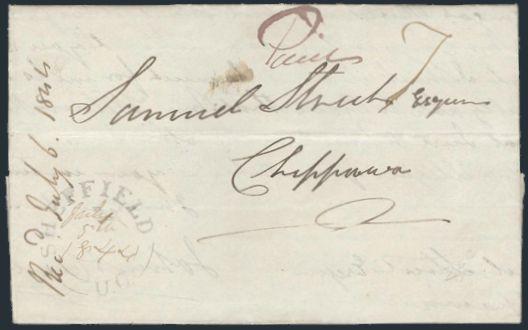 Paid 7
Samuel Street Esquire
Chippawa
Rec'd July 6. 1844
SHEFFIELD
July
5th
1844
U.C.